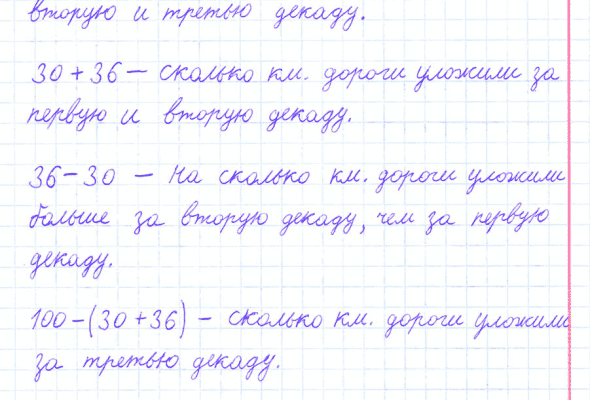 вторую и третью декаду.
30 + 36 — сколько км. дороги уложили за
первую и вторую декаду.
36 - 30 — На сколько км. дороги уложили
больше за вторую декаду, чем за первую
декаду.
100 - (30 + 36) - сколько км. дороги уложили
за третью декаду.